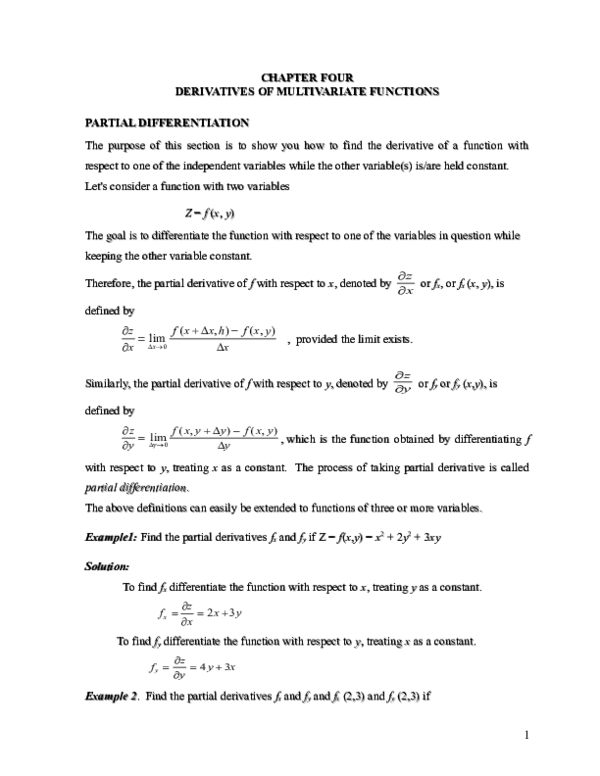 CHAPTER FOUR
DERIVATIVES OF MULTIVARIATE FUNCTIONS
PARTIAL DIFFERENTIATION
The purpose of this section is to show you how to find the derivative of a function with
respect to one of the independent variables while the other variable(s) is/are held constant.
Let's consider a function with two variables
Z = f (x, y)
The goal is to differentiate the function with respect to one of the variables in question while
keeping the other variable constant.
Therefore, the partial derivative of f with respect to x, denoted by ∂z/∂x or fₓ, or fₓ (x, y), is
defined by
∂z/∂x = lim Δx→0 (f (x + Δx, h) − f (x, y))/Δx , provided the limit exists.
Similarly, the partial derivative of f with respect to y, denoted by ∂z/∂y or f_y or f_y (x,y), is
defined by
∂z/∂y = lim Δy→0 (f (x, y + Δy) − f (x, y))/Δy , which is the function obtained by differentiating f
with respect to y, treating x as a constant. The process of taking partial derivative is called
partial differentiation.
The above definitions can easily be extended to functions of three or more variables.
Example1: Find the partial derivatives fₓ and f_y if Z = f(x,y) = x² + 2y² + 3xy
Solution:
To find fₓ differentiate the function with respect to x, treating y as a constant.
fₓ = ∂z/∂x = 2x + 3y
To find f_y differentiate the function with respect to y, treating x as a constant.
f_y = ∂z/∂y = 4y + 3x
Example 2. Find the partial derivatives fₓ and f_y and fₓ (2,3) and f_y (2,3) if
1